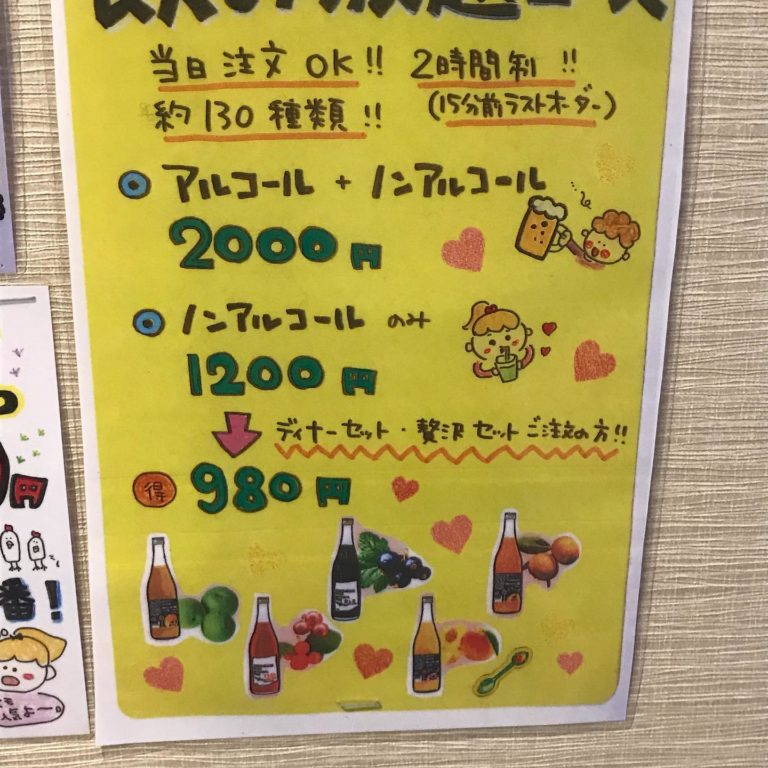 飲み放題コース
当日注文OK!! 2時間制!!
約130種類!! (15分前ラストオーダー)
アルコール + ノンアルコール
2000円
ノンアルコールのみ
1200円
ディナーセット・贅沢セットご注文の方!!
得 980円
円
番!
人気よ〜。